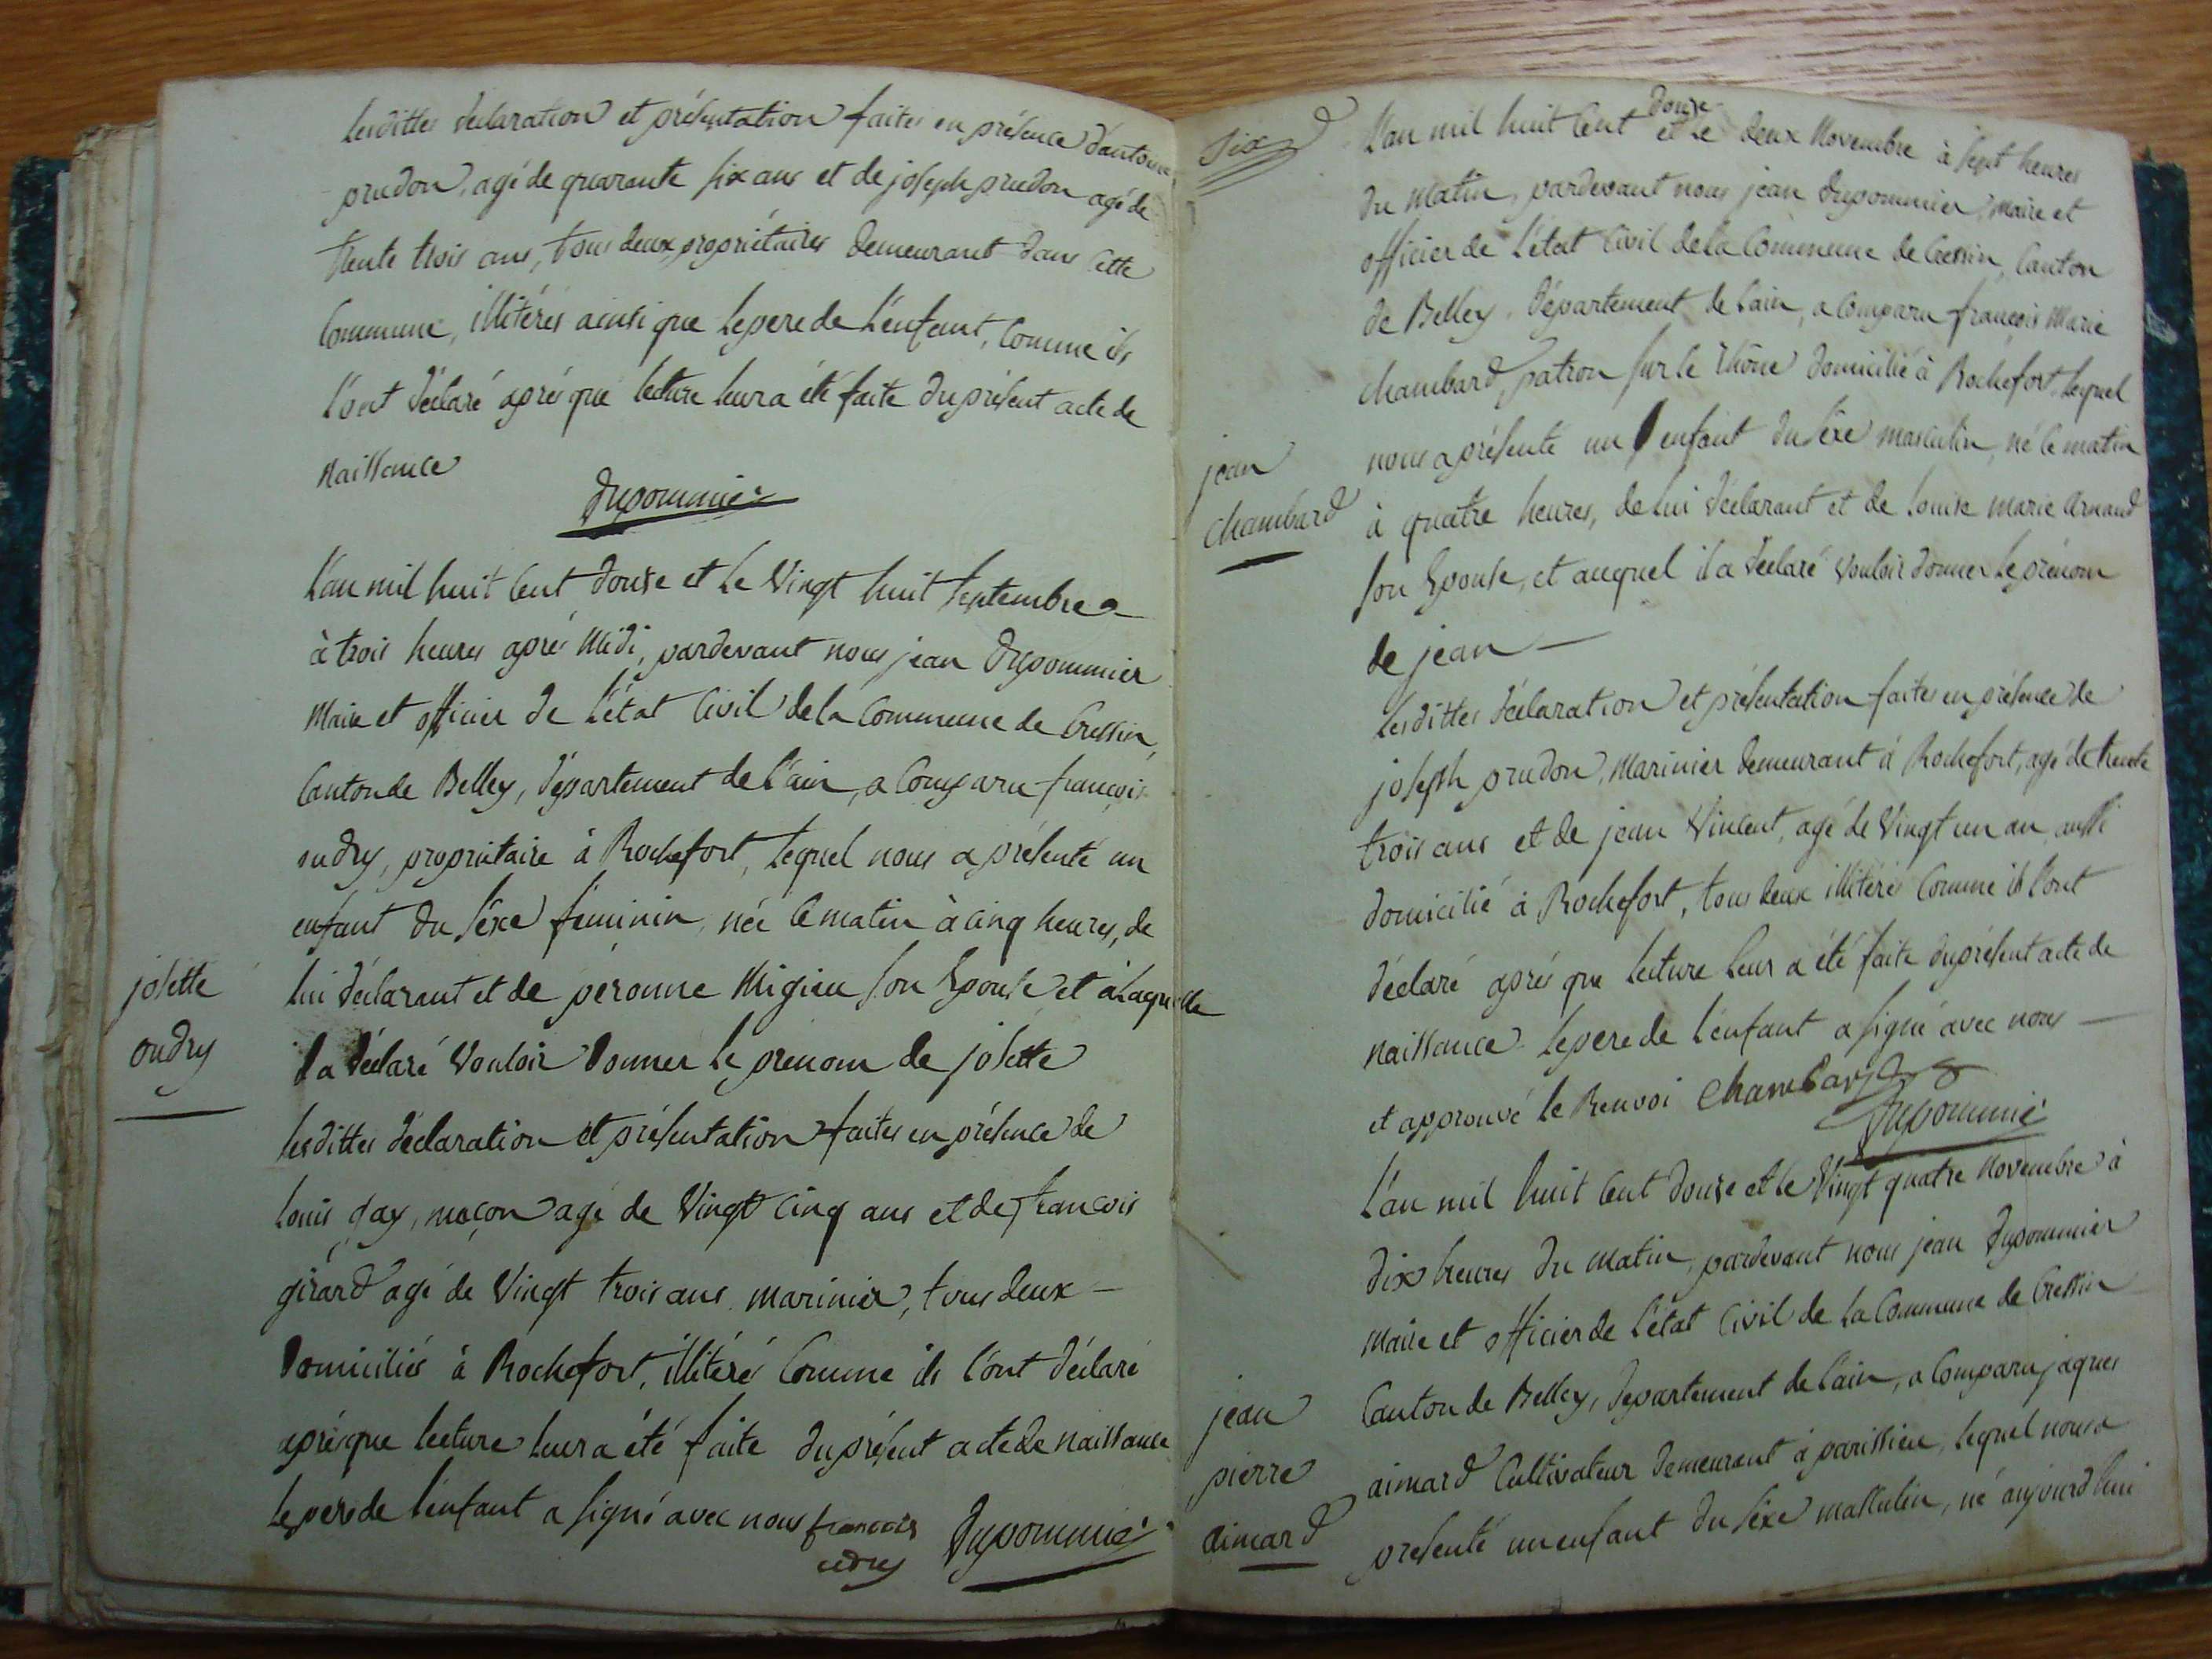 lesdittes déclaration et présentation faites en présence d'antoine
prudon, agé de quarante six ans et de joseph prudon agé de
trente trois ans, tous deux propriétaires demeurant dans cette
Commune, illitérés ainsi que le pere de l'énfant, Comme ils
l'ont déclaré aprés que lecture leur a été faite du présent acte de
naissance
Dupommier
L'an mil huit Cent douze et le Vingt huit septembre
à trois heures aprés Midi, pardevant nous jean Dupommier
Maire et officier de L'état Civil de la Commune de Cressin,
Canton de Belley, département de l'ain, a Comparu françois
oudry, propriétaire à Rochefort, lequel nous a présenté un
enfant du séxe féminin, née ce matin à cinq heures, de
josette
lui déclarant et de péronne Migieu son Epouse et à laquelle
oudry
il a déclaré Vouloir donner le prenom de josette
lesdittes déclaration et présentation faites en présence de
Louis gay, maçon agé de Vingt cinq ans et de françois
girard agé de Vingt trois ans marinier, tous deux
Domiciliés à Rochefort, illitérés Comme ils l'ont déclaré
aprés que lecture leur a été faite du présent acte de naissance
le pere de l'énfant a signé avec nous francois
udry Dupommier
Six
douze
L'an mil huit Cent et le deux Novembre à sept heures
du matin, pardevant nous jean Dupommier, maire et
officier de L'état Civil de la Commune de Cressin, Canton
de Belley, Département de l'ain, a Comparu françois Marie
Chambard, patron sur le Rhône domicilié à Rochefort, lequel
jean
nous a présenté un enfant du séxe masculin, né ce matin
Chambard
à quatre heures, de lui déclarant et de Louise Marie Arnaud
son Epouse, et auquel il a déclaré Vouloir donner le prénom
de jean
Lesdittes déclaration et présentation faites en présence de
joseph prudon, Marinier demeurant à Rochefort, agé de trente
trois ans et de jean Vincent, agé de Vingt un an aussi
domicilié à Rochefort, tous deux illitérés Comme ils l'ont
déclaré aprés que lecture leur a été faite du présent acte de
naissance le pere de l'énfant a signé avec nous
et approuvé le Renvoi Chambard
Dupommier
L'an mil huit Cent douze et le Vingt quatre Novembre à
dix heures du matin, pardevant nous jean Dupommier
Maire et officier de L'état Civil de la Commune de Cressin
jean
Canton de Belley, departement de l'ain, a Comparu jaques
pierre
aimard Cultivateur demeurant à parissieu, lequel nous a
aimard
présenté un enfant du séxe masculin, né aujourd'hui